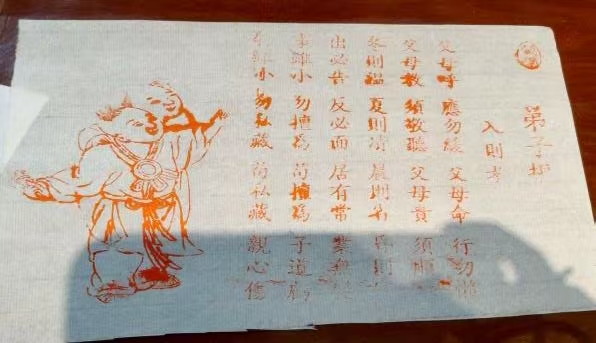 弟子規
入則孝
父母呼 應勿緩 父母命 行勿懶
父母教 須敬聽 父母責 須順
冬則溫 夏則凊 晨則省 昏則
出必告 反必面 居有常 業無
事雖小 勿擅為 苟擅為 子道虧
雖小 勿私藏 苟私藏 親心傷